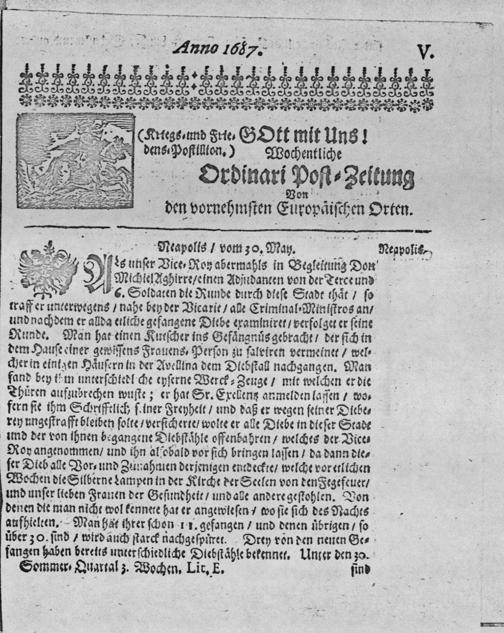 Anno 1687. V.
(Kriegs-und Frie- GOtt mit Uns!
dens-Postillion.) Wochentliche
Ordinari Post-Zeitung
Von
den vornehmsten Europäischen Orten.
Neapolis / vom 30. May. Neapolis.
Als unser Vice-Roy abermahls in Begleitung Don
Michiel Aghirre / einen Adjudanten von der Terce und
6. Soldaten die Runde durch diese Stadt thät / so
traff er unterwegens / nahe bey der Vicarie / alle Criminal-Ministros an /
und nachdem er allda etliche gefangene Diebe examiniret / verfolget er seine
Runde. Man hat einen Kutscher ins Gefängnüs gebracht / der sich in
dem Hause einer gewissens Frauens-Person zu salviren vermeinet / wel-
cher in einigen Häusern in der Avellina dem Diebstall nachgangen. Man
fand bey ihm unterschiedliche eyserne Werck-Zeuge / mit welchen er die
Thüren aufzubrechen wuste; er hat Sr. Excllenz anmelden lassen / wo-
fern sie ihm Schrifftlich seiner Freyheit / und daß er wegen seiner Diebe-
rey ungestrafft bleiben solte / versicherte / wolte er alle Diebe in dieser Stadt
und der von ihnen begangene Diebstähle offenbahren / welches der Vice-
Roy angenommen / und ihn alsobald vor sich bringen lassen / da dann die-
ser Dieb alle Vor- und Zunahmen derjenigen entdeckte / welche vor etlichen
Wochen die Silberne Lampen in der Kirche der Seelen von den Fegefeuer /
und unser lieben Frauen der Gesundheit / und alle andere gestohlen. Von
denen die man nicht wol kennete hat er angewiesen / wo sie sich des Nachts
aufhielten. Man hat ihrer schon 11. gefangen / und denen übrigen / so
über 30. sind / wird auch starck nachgespüret. Drey von den neuen Ge-
fangen haben bereits unterschiedliche Diebstähle bekennet. Unter den 30.
Sommer-Quartal 3. Wochen. Lit. E. sind